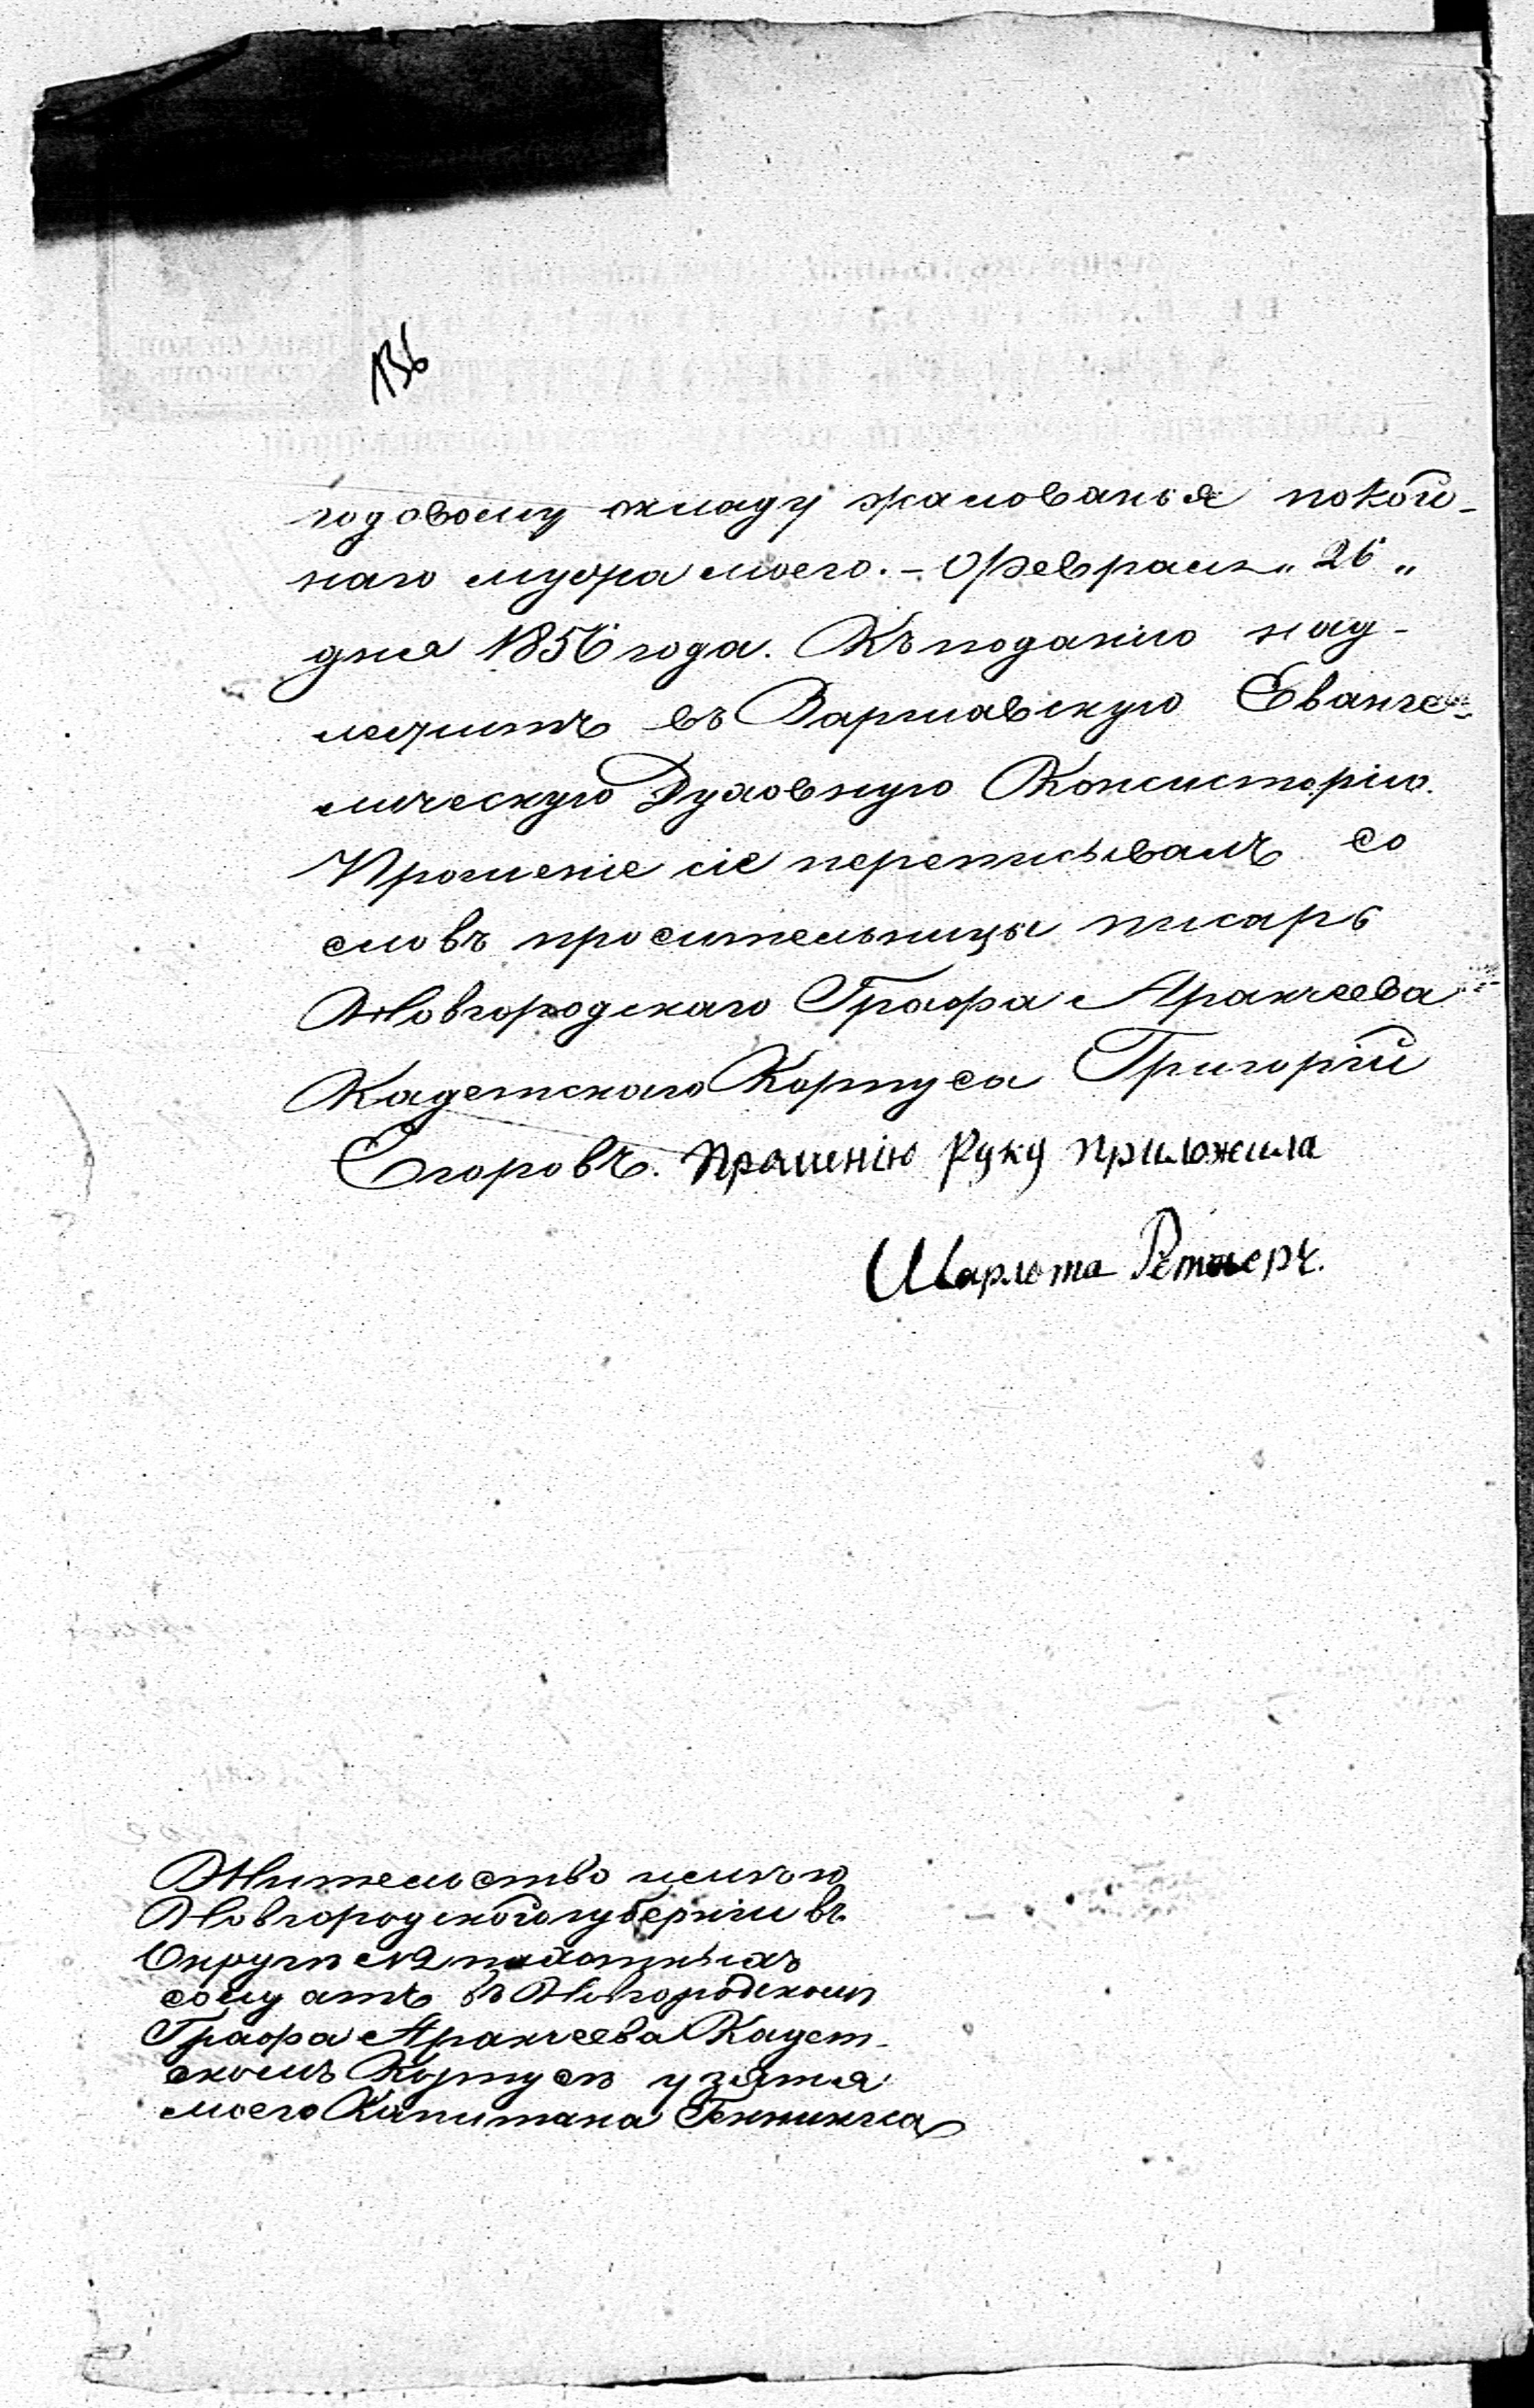 136
годовому окладу жалованья покой-
наго мужа моего. - Февраля „26„
дня 1856 года. Къ поданію над-
лежитъ въ Варшавскую Еванге-
лическую Духовную Консисторію.
Прошеніе сіе переписывалъ со
словъ просительницы писарь
Новгородскаго Графа Аракчеева
Кадетскаго Корпуса Григорій
Егоровъ. Прашенію руку приложила
Шарлота
Жительство имѣю
Новгородской губерніи въ
Округѣ №2 пахотныхъ
солдатъ въ Новгородскомъ
Графа Аракчеева Кадет-
скомъ Корпусѣ у зятя
моего Капитана Геннинга